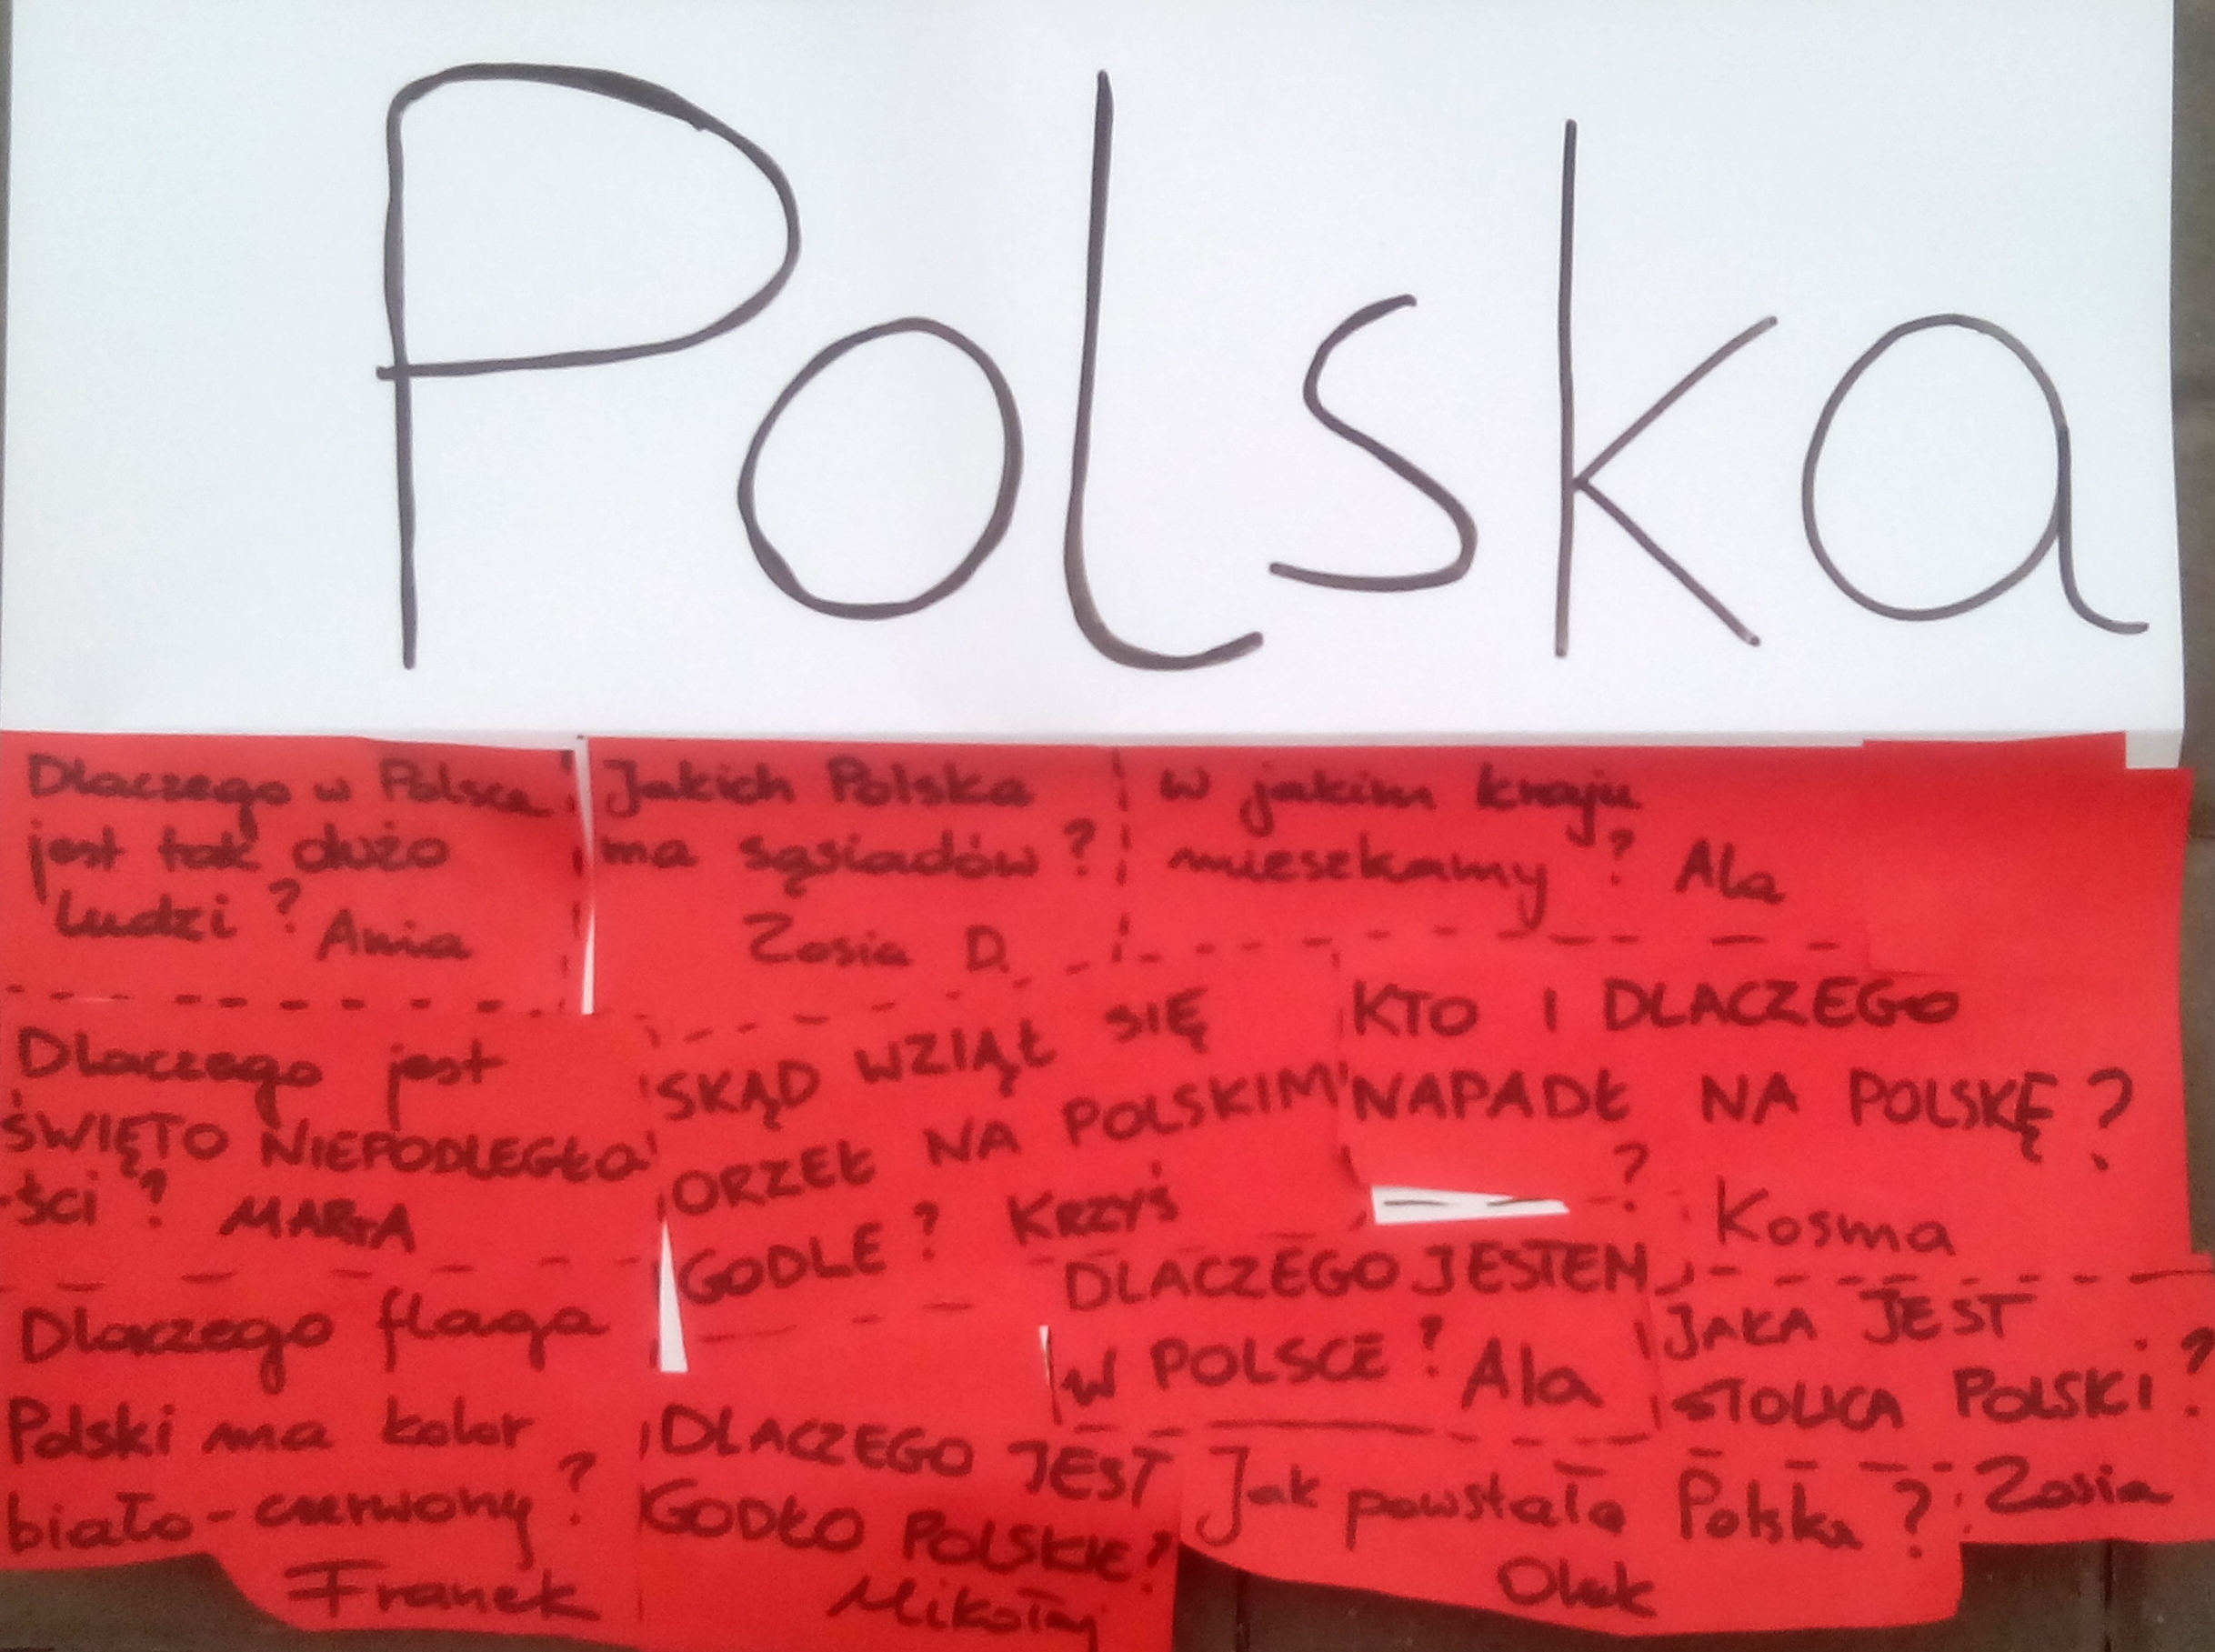 Polska
Dlaczego w Polsce
jest tak dużo
ludzi? Ania
Jakich Polska
ma sąsiadów?
Zosia D.
w jakim kraju
mieszkamy? Ala
Dlaczego jest
ŚWIĘTO NIEPODLEGŁO
-ści? MARTA
SKĄD WZIĄŁ SIĘ
ORZEŁ NA POLSKIM
GODLE? KRZYŚ
KTO I DLACZEGO
NAPADŁ NA POLSKĘ?
Kosma
Dlaczego flaga
Polski ma kolor
biało-czerwony?
Franek
DLACZEGO JEST
GODŁO POLSKIE?
Mikołaj
?
DLACZEGO JESTEM
W POLSCE? Ala
JAKA JEST
STOLICA POLSKI?
Zosia
Jak powstała Polska?
Olek